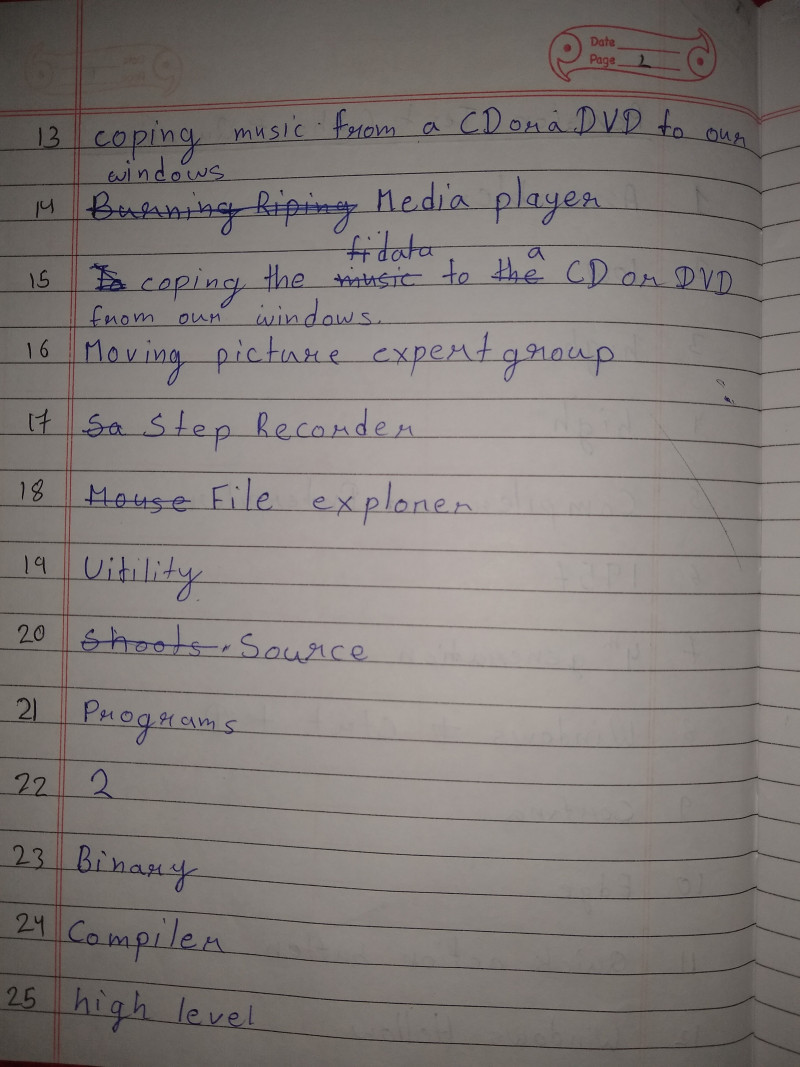 Date
Page 2
13 coping music from a CD or a DVD to our
windows
14 Burning Riping Media player
fi data a
15 To coping the music to the CD or DVD
from our windows.
16 Moving picture expert group
17 Sa Step Recorder
18 Mouse File explorer
19 Uitility
20 Shoots Source
21 Programs
22 2
23 Binary
24 Compiler
25 high level